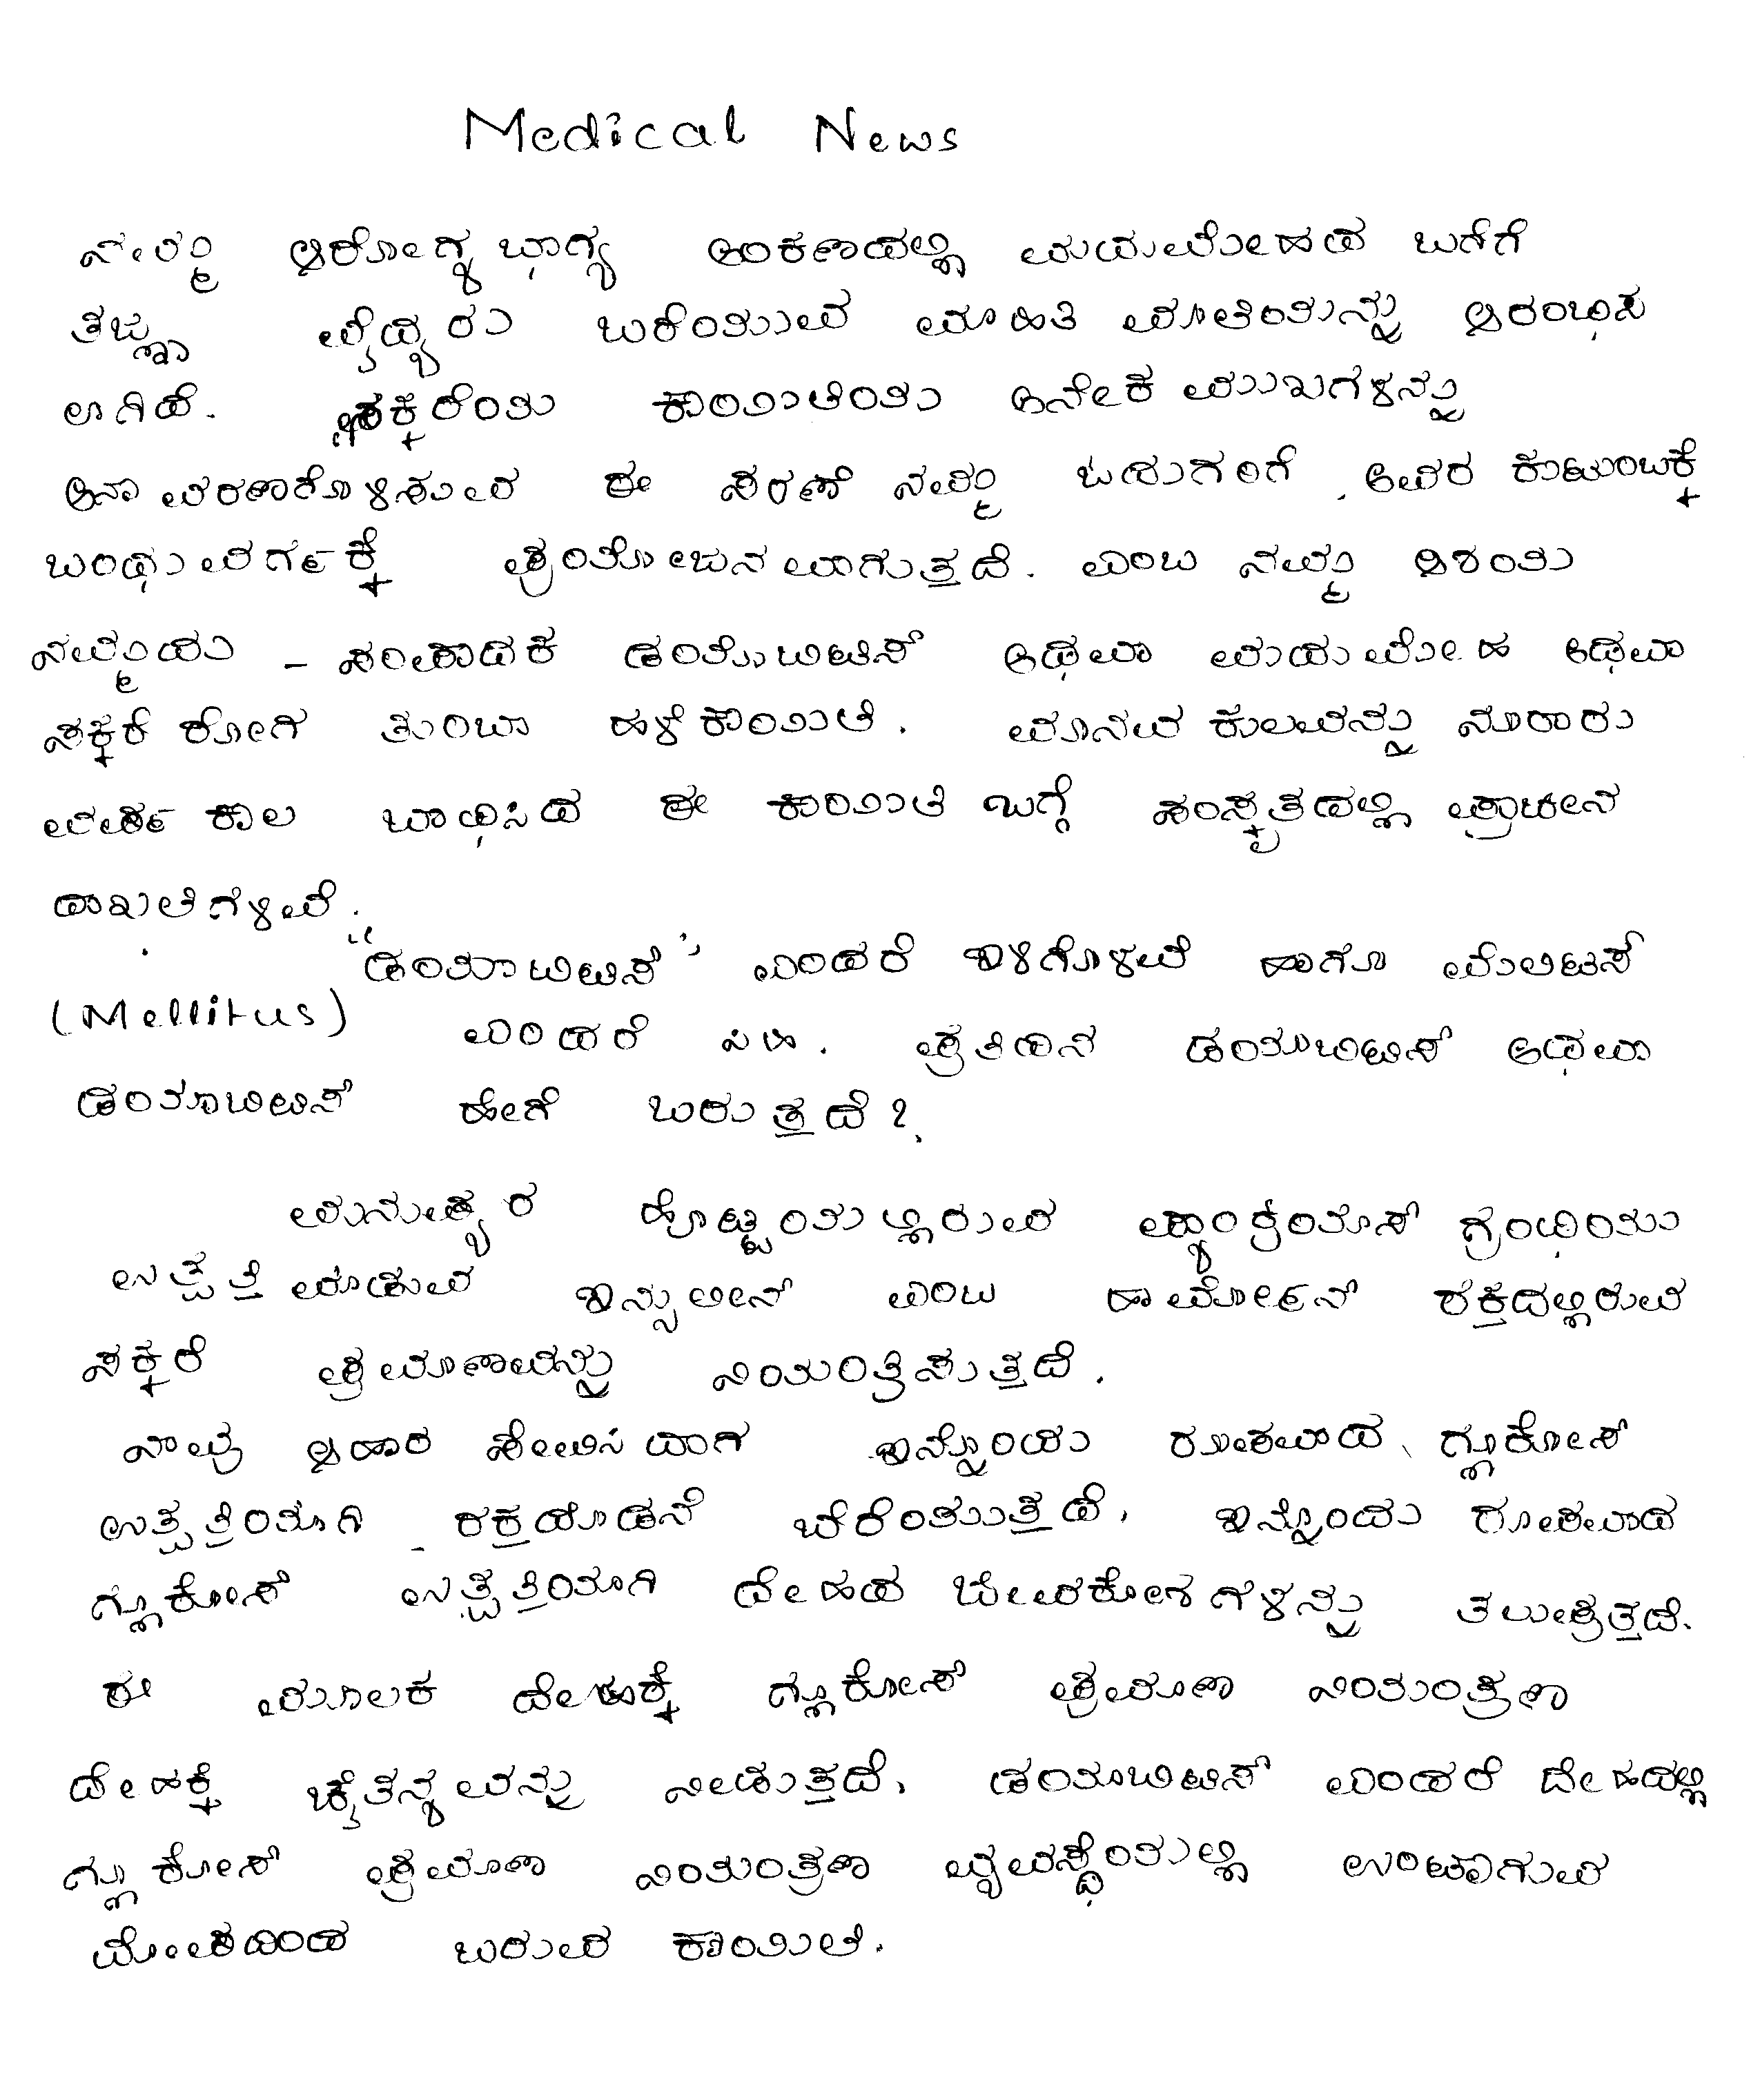 Medical News
ನಮ್ಮ ಆರೋಗ್ಯ ಭಾಗ್ಯ ಅಂಕಣದಲ್ಲಿ ಮಧುಮೇಹದ ಬಗೆಗೆ
ತಜ್ಞ ವೈದ್ಯರು ಬರೆಯುವ ಮಾಹಿತಿ ಮಾಲೆಯನ್ನು ಆರಂಭಿಸ
ಲಾಗಿದೆ. ಸಕ್ಕರೆಯ ಕಾಯಿಲೆಯ ಅನೇಕ ಮುಖಗಳನ್ನು
ಅನಾವರಣಗೊಳಿಸುವ ಈ ಸರಣಿ ನಮ್ಮ ಓದುಗರಿಗೆ, ಅವರ ಕುಟುಂಬಕ್ಕೆ
ಬಂಧುವರ್ಗಕ್ಕೆ ಪ್ರಯೋಜನವಾಗುತ್ತದೆ. ಎಂಬ ನಮ್ಮ ಆಶಯ
ನಮ್ಮದು - ಸಂಪಾದಕ ಡಯಾಬಿಟಿಸ್ ಅಥವಾ ಮಧುಮೇಹ ಅಥವಾ
ಸಕ್ಕರೆ ರೋಗ ತುಂಬಾ ಹಳೆಕಾಯಿಲೆ. ಮಾನವ ಕುಲವನ್ನು ನೂರಾರು
ವರ್ಷ ಕಾಲ ಬಾಧಿಸಿದ ಈ ಕಾಯಿಲೆ ಬಗ್ಗೆ ಸಂಸ್ಕೃತದಲ್ಲಿ ಪ್ರಾಚೀನ
ದಾಖಲೆಗಳಿವೆ.
"ಡಯಾಬಿಟಿಸ್' ಎಂದರೆ ಇಳಿಗೊಳವೆ ಹಾಗೂ ಮೆಲಿಟಸ್
(Mellitus) ಎಂದರೆ ಸಿಹಿ. ಪ್ರತಿದಿನ ಡಯಾಬಿಟಿಸ್ ಅಥವಾ
ಡಯಾಬಿಟಿಸ್ ಹೇಗೆ ಬರುತ್ತದೆ?
ಮನುಷ್ಯರ ಹೊಟ್ಟೆಯಲ್ಲಿರುವ ಪ್ಯಾಂಕ್ರಿಯಾಸ್ ಗ್ರಂಥಿಯು
ಉತ್ಪತ್ತಿ ಮಾಡುವ ಇನ್ಸುಲೀನ್ ಎಂಬ ಹಾರ್ಮೋನ್ ರಕ್ತದಲ್ಲಿರುವ
ಸಕ್ಕರೆ ಪ್ರಮಾಣವನ್ನು ನಿಯಂತ್ರಿಸುತ್ತದೆ.
ನಾವು ಆಹಾರ ಸೇವಿಸಿದಾಗ ಇನ್ನೊಂದು ರೂಪವಾದ ಗ್ಲೂಕೋಸ್
ಉತ್ಪತ್ತಿಯಾಗಿ ರಕ್ತದೊಡನೆ ಬೆರೆಯುತ್ತದೆ. ಇನ್ನೊಂದು ರೂಪವಾದ
ಗ್ಲೂಕೋಸ್ ಉತ್ಪತ್ತಿಯಾಗಿ ದೇಹದ ಜೀವಕೋಶಗಳನ್ನು ತಲುಪುತ್ತದೆ.
ಈ ಮೂಲಕ ದೇಹಕ್ಕೆ ಗ್ಲೂಕೋಸ್ ಪ್ರಮಾಣ ನಿಯಂತ್ರಣ
ದೇಹಕ್ಕೆ ಚೈತನ್ಯವನ್ನು ನೀಡುತ್ತದೆ. ಡಯಾಬಿಟಿಸ್ ಎಂದರೆ ದೇಹದಲ್ಲಿ
ಗ್ಲೂಕೋಸ್ ಪ್ರಮಾಣ ನಿಯಂತ್ರಣ ವ್ಯವಸ್ಥೆಯಲ್ಲಿ ಉಂಟಾಗುವ
ದೋಷದಿಂದ ಬರುವ ಕಾಯಿಲೆ.